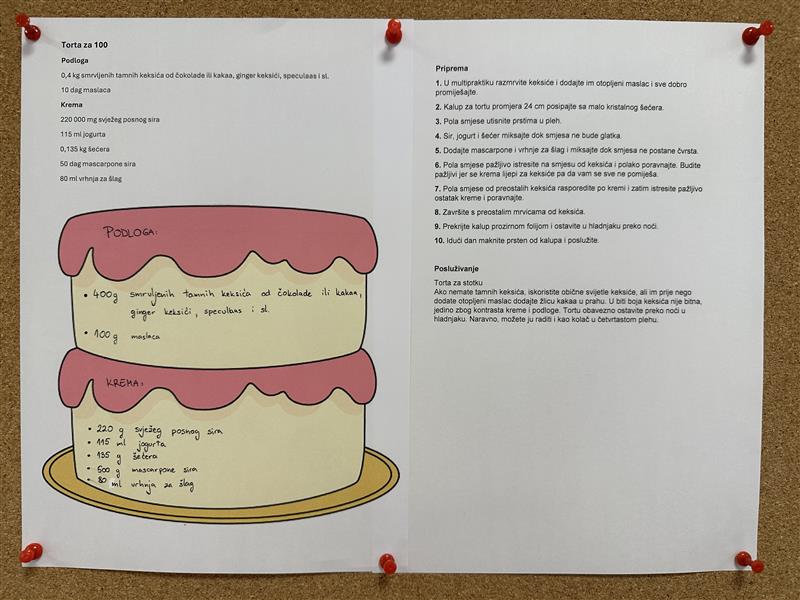 Torta za 100
Podloga
0,4 kg smrvljenih tamnih keksića od čokolade ili kakaa, ginger keksići, speculaas i sl.
10 dag maslaca
Krema
220 000 mg svježeg posnog sira
115 ml jogurta
0,135 kg šećera
50 dag mascarpone sira
80 ml vrhnja za šlag
PODLOGA:
• 400g smrvljenih tamnih keksića od čokolade ili kakaa,
ginger keksići, speculaas i sl.
• 100 g maslaca
KREMA:
• 220 g svježeg posnog sira
• 115 ml jogurta
• 135 g šećera
• 500 g mascarpone sira
• 80 ml vrhnja za šlag
Priprema
1. U multipraktiku razmrvite keksiće i dodajte im otopljeni maslac i sve dobro
promiješajte.
2. Kalup za tortu promjera 24 cm posipajte sa malo kristalnog šećera.
3. Pola smjese utisnite prstima u pleh.
4. Sir, jogurt i šećer miksajte dok smjesa ne bude glatka.
5. Dodajte mascarpone i vrhnje za šlag i miksajte dok smjesa ne postane čvrsta.
6. Pola smjese pažljivo istresite na smjesu od keksića i polako poravnajte. Budite
pažljivi jer se krema lijepi za keksiće pa da vam se sve ne pomiješa.
7. Pola smjese od preostalih keksića rasporedite po kremi i zatim istresite pažljivo
ostatak kreme i poravnajte.
8. Završite s preostalim mrvicama od keksića.
9. Prekrijte kalup prozirnom folijom i ostavite u hladnjaku preko noći.
10. Idući dan maknite prsten od kalupa i poslužite.
Posluživanje
Torta za stotku
Ako nemate tamnih keksića, iskoristite obične svijetle keksiće, ali im prije nego
dodate otopljeni maslac dodajte žlicu kakaa u prahu. U biti boja keksića nije bitna,
jedino zbog kontrasta kreme i podloge. Tortu obavezno ostavite preko noći u
hladnjaku. Naravno, možete ju raditi i kao kolač u četvrtastom plehu.